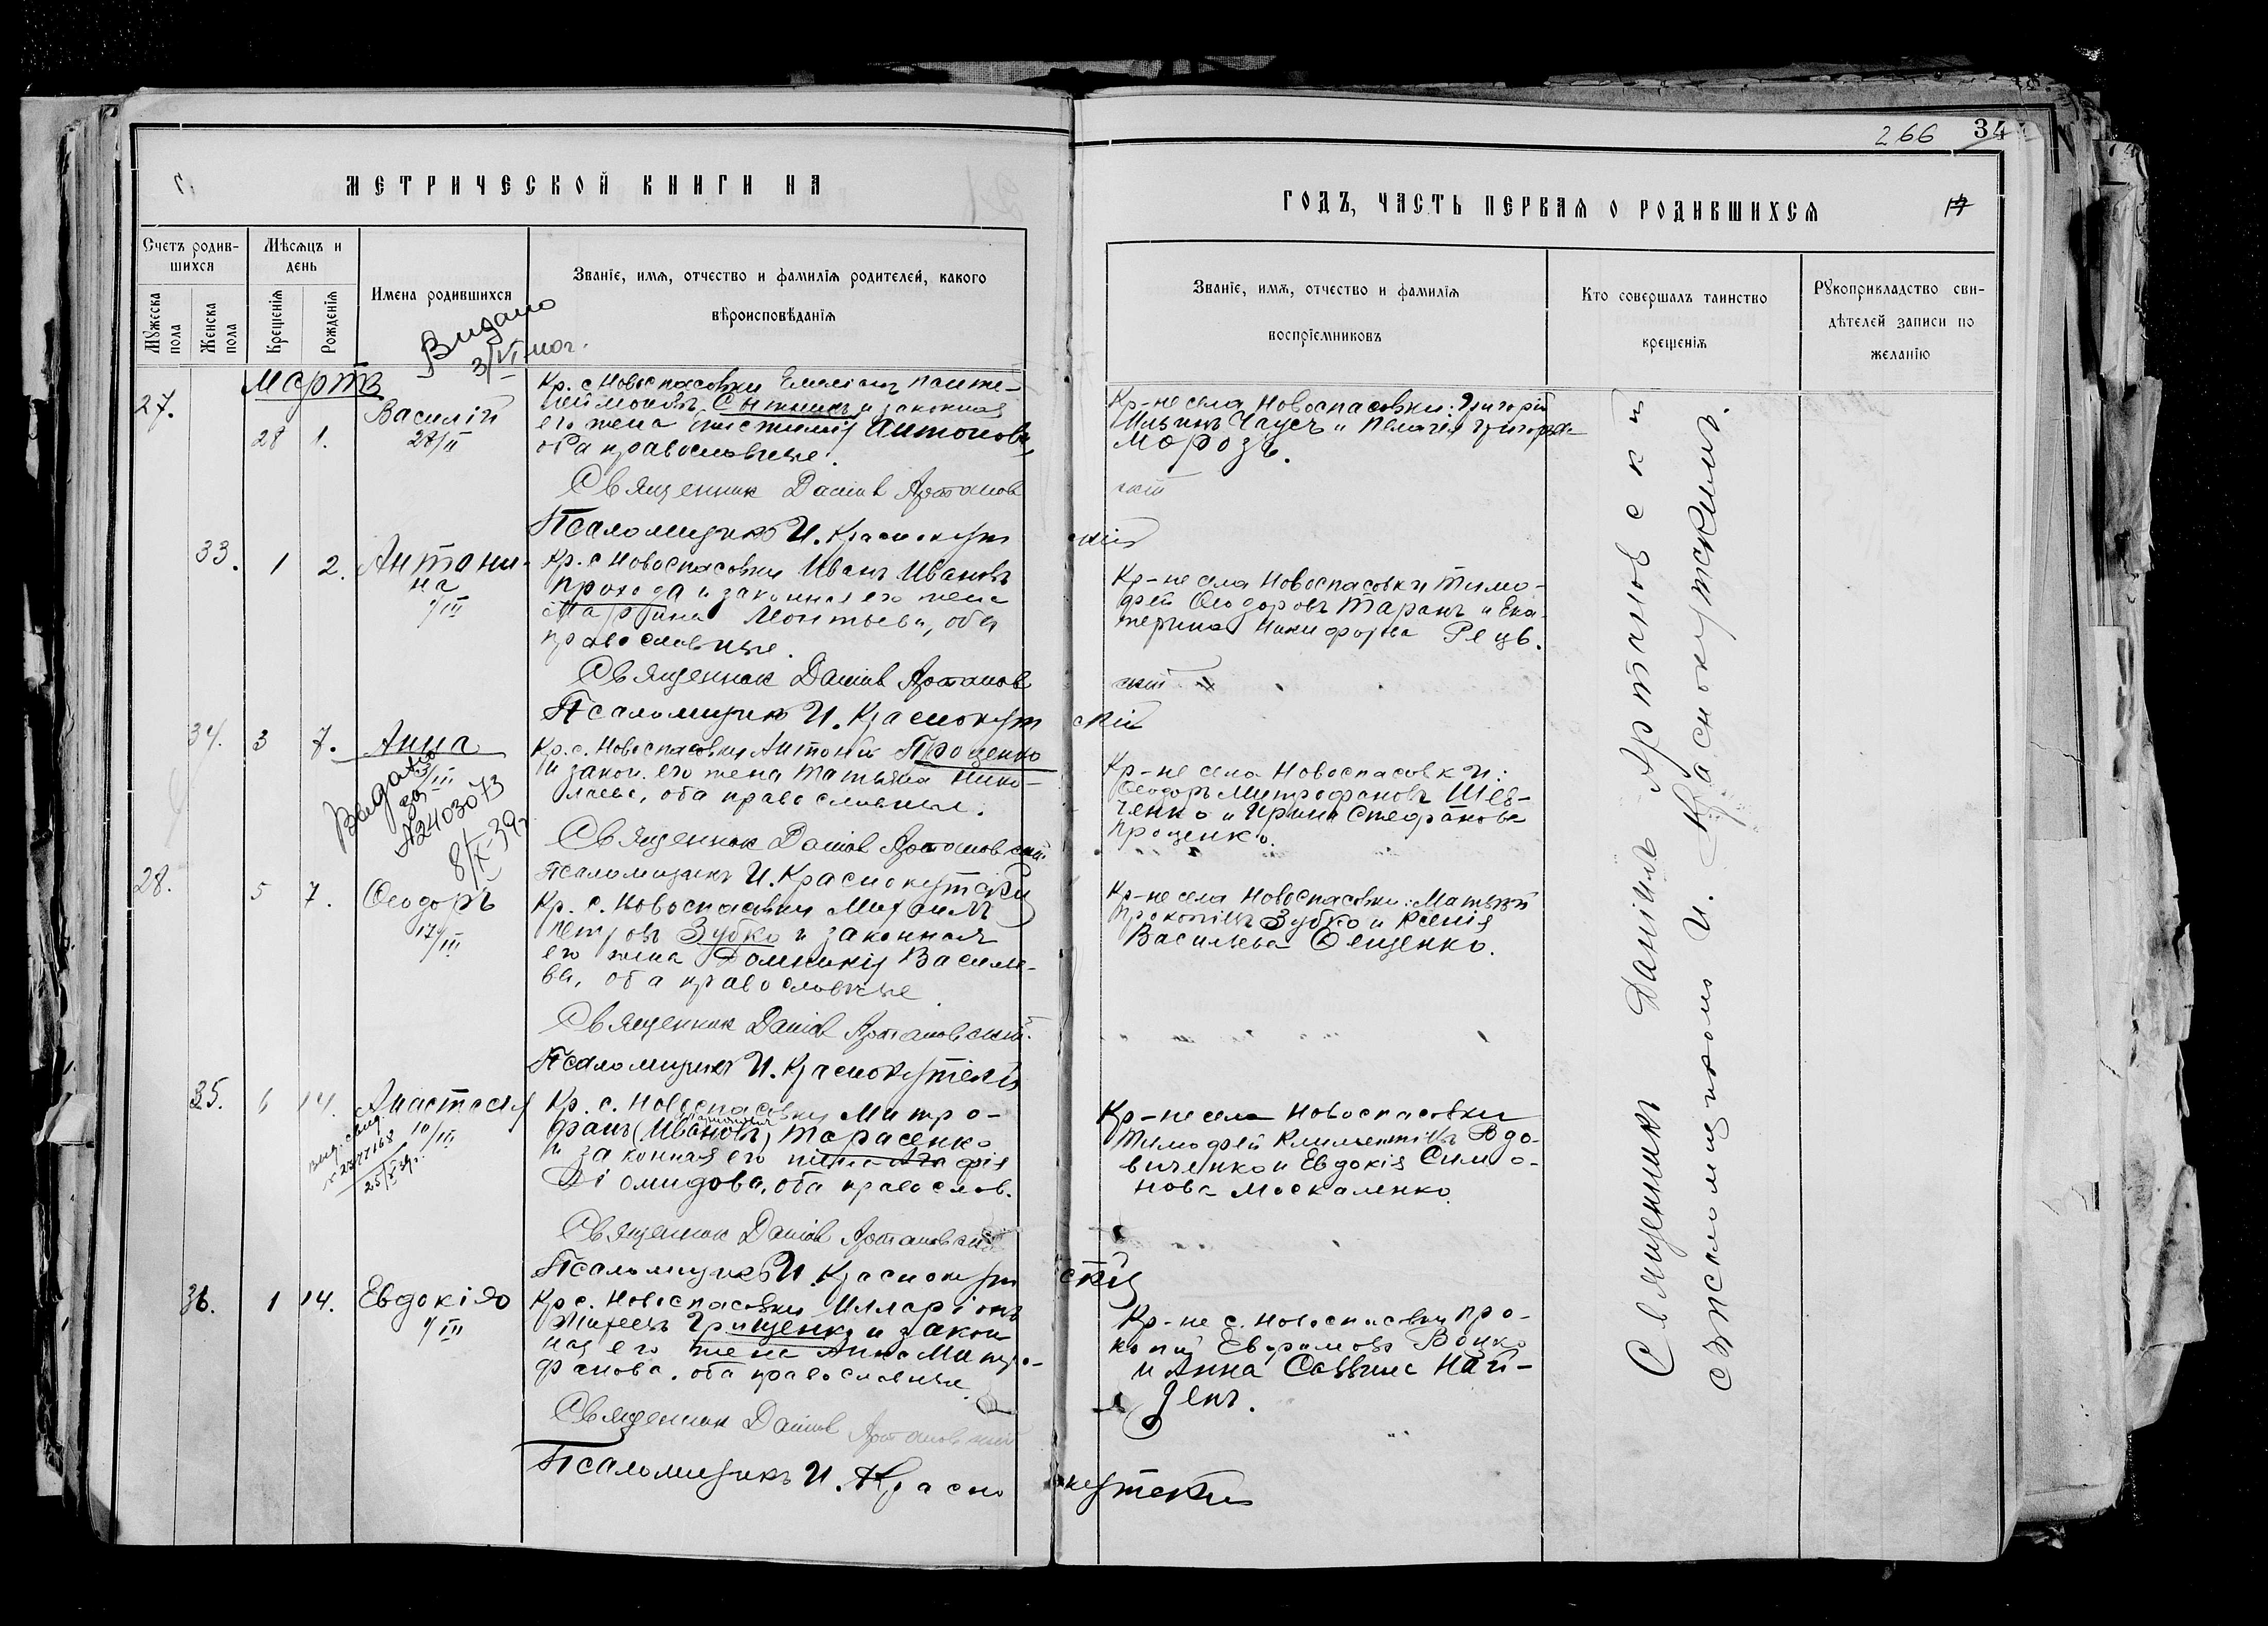 266 34
МЕТРИЧЕСКОЙ КНИГИ НА
ГОДЪ, ЧАСТЬ ПЕРВАЯ О РОДИВШИХСЯ
17
Счетъ родив-
шихся
Мужеска пола
Женска пола
Мѣсяцъ и
день
Крещенія
Рожденія
Имена родившихся
Званіе, имя, отчество и фамилія родителей, какого
вѣроисповѣданія
Званіе, имя, отчество и фамилія
воспріемниковъ
Кто совершалъ таинство
крещенія
Рукоприкладство сви-
дѣтелей записи по
желанію
Видано
3/VI
Мартъ
27.
28 1.
Василій
28/II
Кр. с Новоспасовки Емеліанъ Панте-
леймоновъ Сытникъ и законная
его жена Антонова,
оба православные.
Священник Даниил Артанов
ский
Псаломщикъ И. Краснокут
скій
Кр-не села Новоспасовки: Григорій
Ильинъ Чаусъ и Пелагея Григорьева
Морозъ.
33. 1 2.
Антони-
на
1/III
Кр. с Новоспасовки Иванъ Ивановъ
Прохода и законная его жена
Марфина Леонтьева, оба
православные.
Священник Даниил Артанов
ский
Псаломщикъ И. Краснокут
скій
Кр-не села Новоспасовки Тимо-
фей Ѳеодоровъ Таранъ и Ека-
терина Никифорова Рецъ.
34. 3 7.
Анна
3/III
Выдано
за
А2403073
8/X-39г.
Кр. с. Новоспасовки Антоній Проценко
и закон. его жена Татьяна Нико-
лаева, оба православные.
Священник Даниил Артановский
Псаломщикъ И. Краснокутскій
Кр-не села Новоспасовки:
Ѳеодоръ Митрофановъ Шев-
ченко и Ирина Стефанова
Проценко.
28. 5 7.
Ѳеодоръ
17/III
Кр. с. Новоспасовки Михаилъ
Петровъ Зубко и законная
его жена Домникія Василье-
ва, оба православные
Священник Даниил Артановский
Псаломщикъ И. Краснокутскій
Кр-не села Новоспасовки: Матвѣй
Прокопіевъ Зубко и Ксенія
Васильева Ѳещенко.
35. 6 14.
Анастасія
10/III
выд. свид
№ 2377168
25/X 39г.
Кр. с. Новоспасовки Митро-
фанъ (Ивановъ) Тарасенко
и законная его жена Агафія
Діомидова, оба правослов.
Священник Даниил Артановский
Псаломщикъ И. Краснокут
скій
Кр-не села Новоспасовки
Тимофей Климентіевъ Вдо-
виченко и Евдокія Симо-
нова Москаленко.
36. 1 14.
Евдокія
1/III
Кр с. Новоспасовки Илларіонъ
Михеевъ Грищенко и закон
ная его жена Анна Митро-
фанова, оба православные.
Священник Даниил Артановский
Псаломщикъ И. Красно
кутскій
Кр-не с. Новоспасовки Про-
копій Евфимовъ Воцко
и Анна Саввина Най-
денъ.
Священникъ Даніилъ Артановскій
съ псаломщикомъ И. Краснокутскимъ.